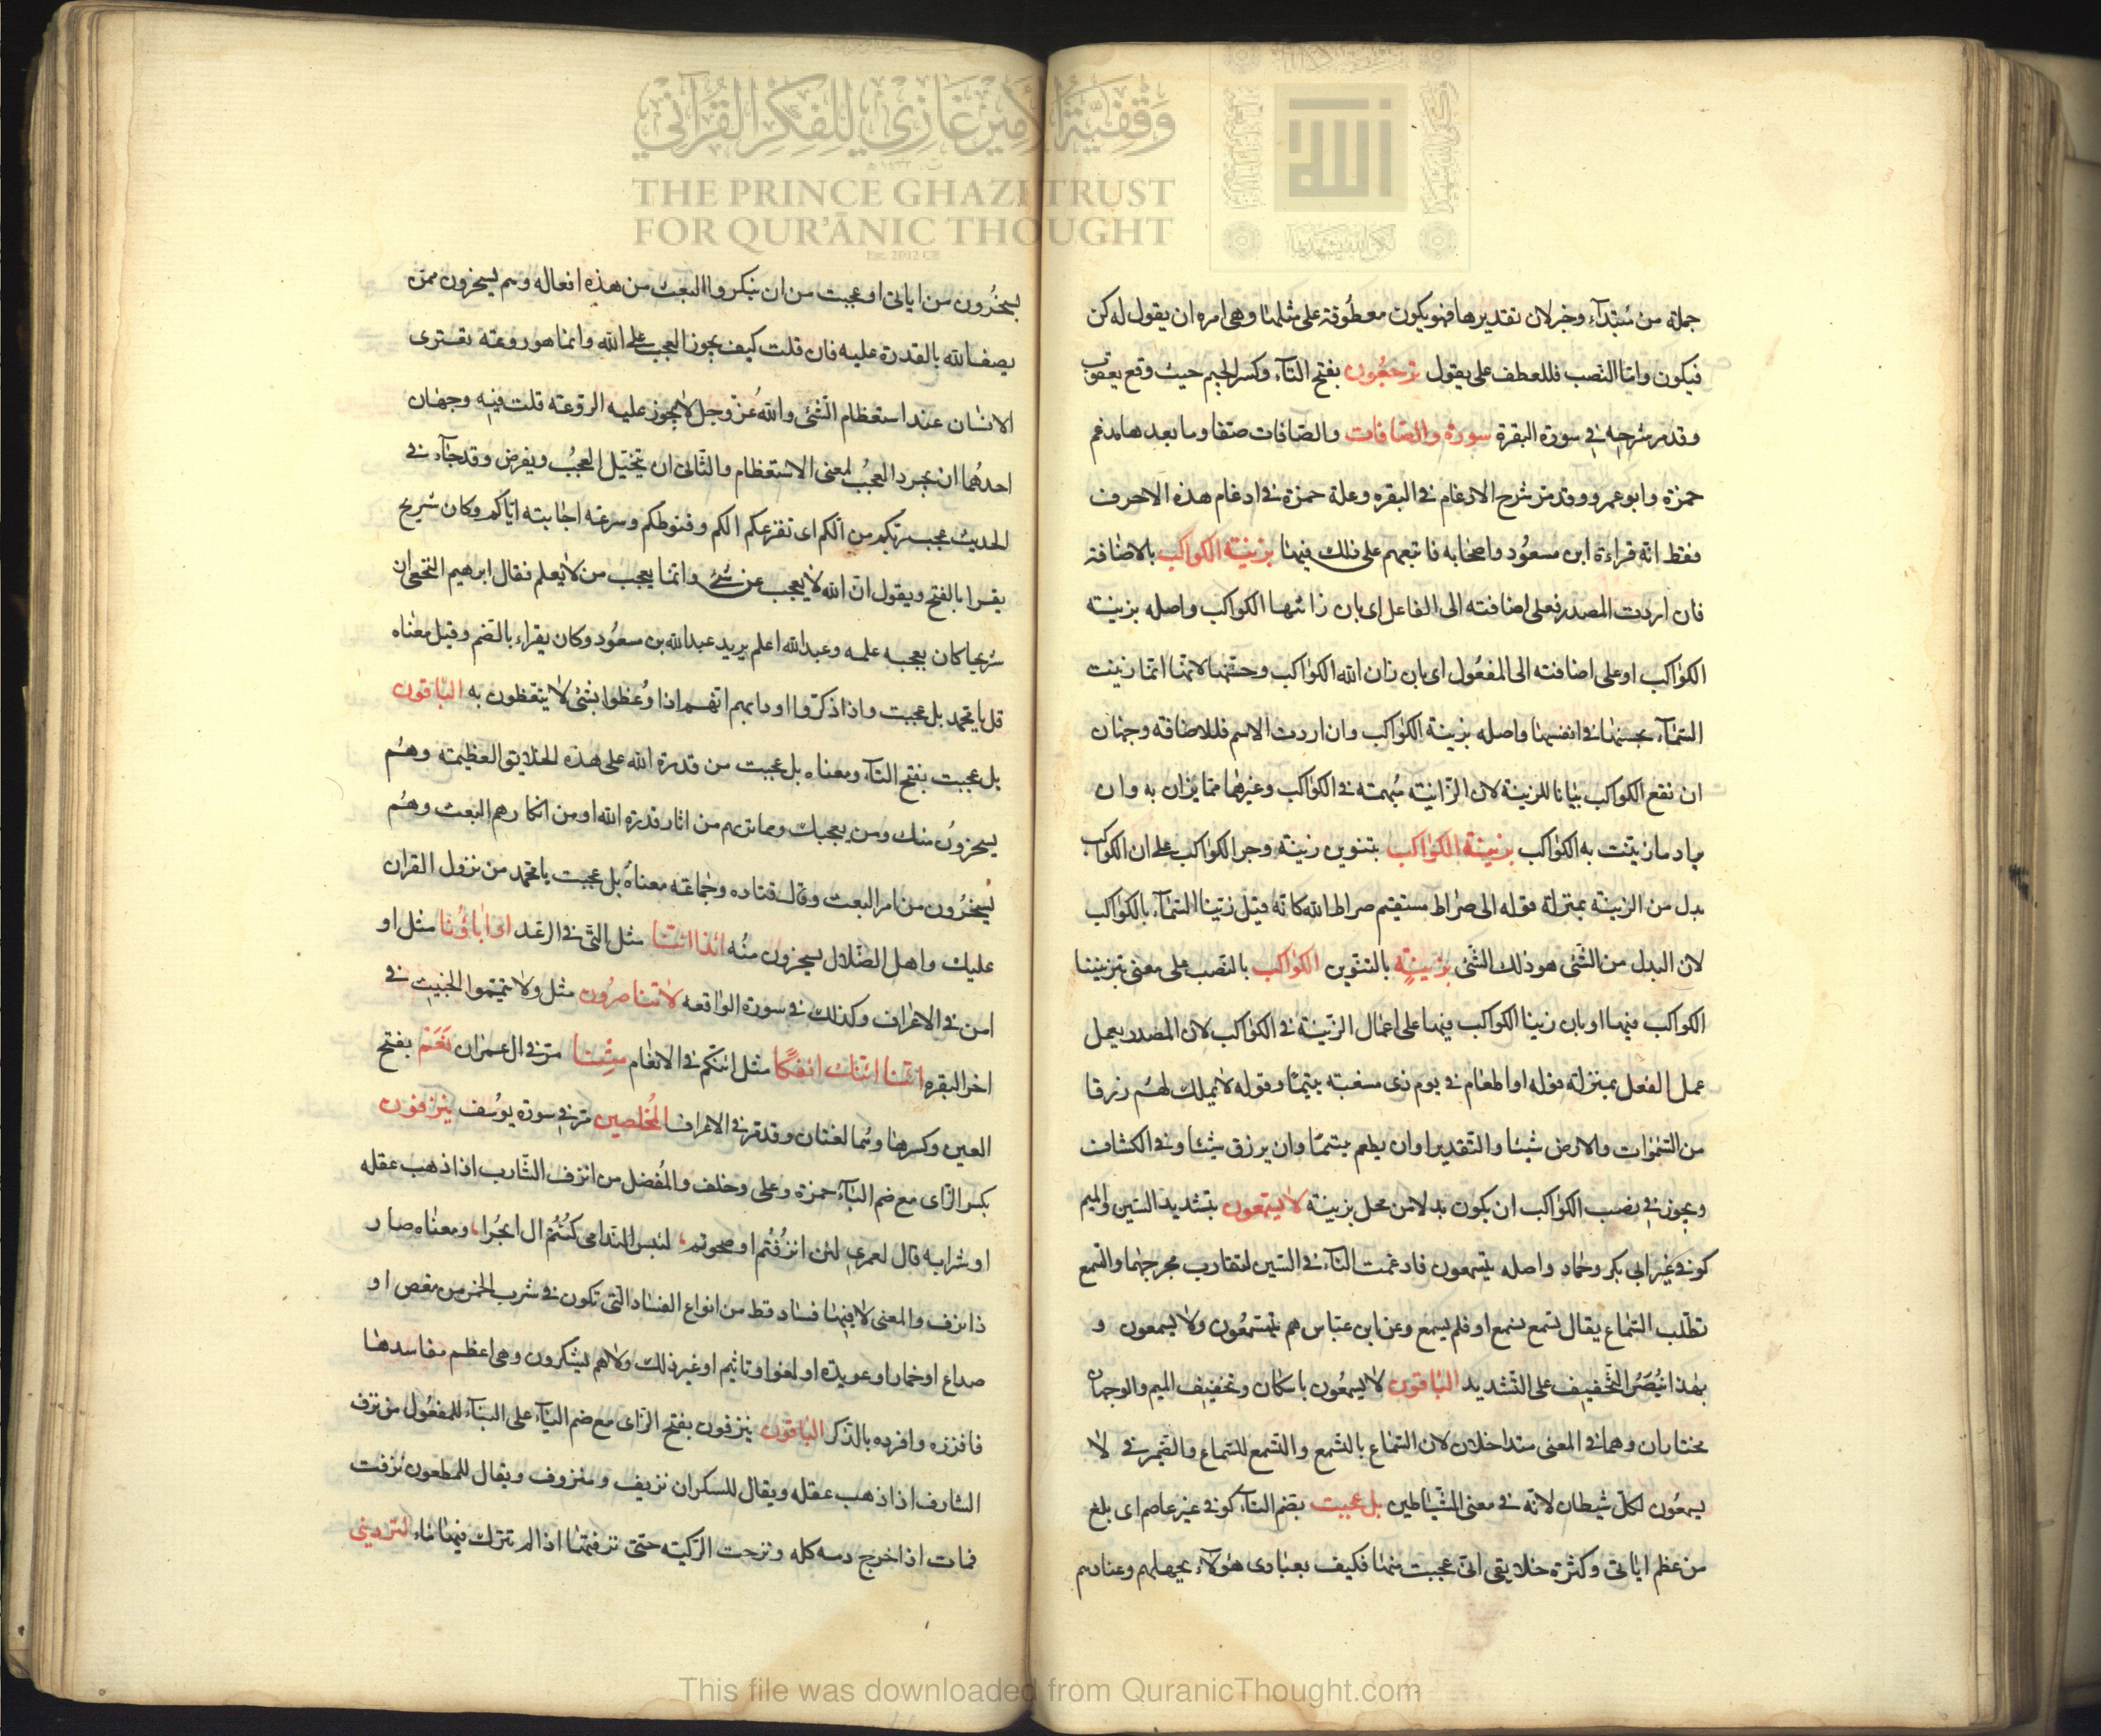 وقفية الأمير غازي للفكر القرآني
THE PRINCE GHAZI TRUST
FOR QUR'ĀNIC THOUGHT
Est. 2012 CE
الله
جملة من مبتداء وخبر لان تقديرها فهو يكون معطوفة على مثلها وهى امره ان يقول له كن
فيكون واما النصب فللعطف على يقول ترجعون بفتح التاء وكسر الجيم حيث وقع يعقوب
وقد مر شرحه في سورة البقرة سورة والصافات والصافات صفا وما بعدها مدغم
حمزة وابو عمرو وقد مر شرح الادغام في البقره وعلة حمزة في ادغام هذه الاحرف
فقط انه قراءة ابن مسعود واصحابه فاتبعهم على ذلك فيها بزينة الكواكب بالاضافة
فان اردت المصدر فعلى اضافته الى الفاعل اى بان زانتها الكواكب واصله بزينة
الكواكب او على اضافته الى المفعول اى بان زان الله الكواكب وحسنها لانها انما زينت
السماء بحسنها في انفسها واصله بزينة الكواكب وان اردت الاسم فللاضافة وجهان
ان تقع الكواكب بيانا للزينة لان الزينة مبهمة في الكواكب وغيرها مما يزان به وان
يراد ما زينت به الكواكب بزينة الكواكب بتنوين زينة وجر الكواكب على ان الكواكب
بدل من الزينة بمنزلة قوله الى صراط مستقيم صراط الله كانه قيل زينا السماء بالكواكب
لان البدل من الشئ هو ذلك الشئ بزينة بالتنوين الكواكب بالنصب على معنى بتزييننا
الكواكب فيها او بان زينا الكواكب فيها على اعمال الزينة في الكواكب لان المصدر يعمل
عمل الفعل بمنزلة قوله او اطعام في يوم ذى مسغبة يتيما وقوله لا يملك لهم رزقا
من السموات والارض شيئا والتقدير او ان يطعم يتيما وان يرزق شيئا وفي الكشاف
ويجوز في نصب الكواكب ان يكون بدلا من محل بزينة لا يسمعون بتشديد السين والميم
كوفي غير ابى بكر وحماد واصله يتسمعون فادغمت التاء في السين لتقارب مخرجهما والتسمع
تطلب السماع يقال تسمع فسمع او فلم يسمع وعن ابن عباس هم يتسمعون ولا يسمعون و
بهذا ينصر التخفيف على التشديد الباقون لا يسمعون باسكان وتخفيف الميم والوجهان
مختاران وهما في المعنى متداخلان لان السماع بالتسمع والتسمع للسماع والضمير في لا
يسمعون لكل شيطان لانه في معنى الشياطين بل عجبت بضم التاء كوفي غير عاصم اى بلغ
من عظم اياتى وكثرة خلايقى انى عجبت منها فكيف بعبادى هؤلاء بجهلهم وعنادهم
يسخرون من اياتى او عجبت من ان ينكروا البعث من هذه افعاله وهم يسخرون ممن
يصف الله بالقدرة عليه فان قلت كيف يجوز العجب على الله وانما هو روعة تعترى
الانسان عند استعظام الشئ والله عز وجل لا يجوز عليه الروعة قلت فيه وجهان
احدهما ان يجرد العجب لمعنى الاستعظام والثانى ان يتخيل العجب ويفرض وقد جاء في
الحديث عجب ربكم من الكم اى تفزعكم الكم وقنوطكم وسرعة اجابته اياكم وكان شريح
يقرا بالفتح ويقول ان الله لا يعجب عن شئ وانما يعجب من لا يعلم فقال ابرهيم النخعى ان
شريحا كان يعجبه علمه وعبد الله اعلم يريد عبد الله بن مسعود وكان يقراء بالضم وقيل معناه
قل يا محمد بل عجبت واذا ذكروا او دابهم انهم اذا وعظوا بشئ لا يتعظون به الباقون
بل عجبت بفتح التاء ومعناه بل عجبت من قدرة الله على هذه الخلايق العظيمة وهم
يسخرون منك ومن يعجبك ومما تريهم من اثار قدرة الله او من انكارهم البعث وهم
يسخرون من امر البعث وقال قتاده وجماعة معناه بل عجبت يا محمد من نزول القران
عليك واهل الضلال يسخرون منه ائذا ائنا مثل التى في الرعد او اباؤنا مثل او
امن في الاعراف وكذلك في سورة الواقعه لا تناصرون مثل ولا تيمموا الخبيث في
اخر البقره ائنا ائنك ائفكا مثل ائنكم في الانعام متنا مر في ال عمران نعم بفتح
العين وكسرها وهما لغتان وقد مر في الاعراف المخلصين مر في سورة يوسف ينزفون
بكسر الزاى مع ضم الياء حمزة وعلى وخلف والمفضل من انزف الشارب اذا ذهب عقله
او شرابه قال لعمرى لئن انزفتم او صحوتم لبئس الندامى كنتم ال ابجرا ومعناه صار
ذا نزف والمعنى لا فيها فساد قط من انواع الفساد التى تكون في شرب الخمر من مغص او
صداع او خمار او عربدة او لغو او تاثيم او غير ذلك ولا هم يسكرون وهى اعظم مفاسدها
فافرزه وافرده بالذكر الباقون ينزفون بفتح الزاى مع ضم الياء على البناء للمفعول من نزف
الشارف اذا ذهب عقله ويقال للسكران نزيف ومنزوف ويقال للمطعون نزفت
فمات اذا خرج دمه كله ونزحت الركية حتى نزفتها اذا لم تترك فيها ماء لتردينى
This file was downloaded from QuranicThought.com